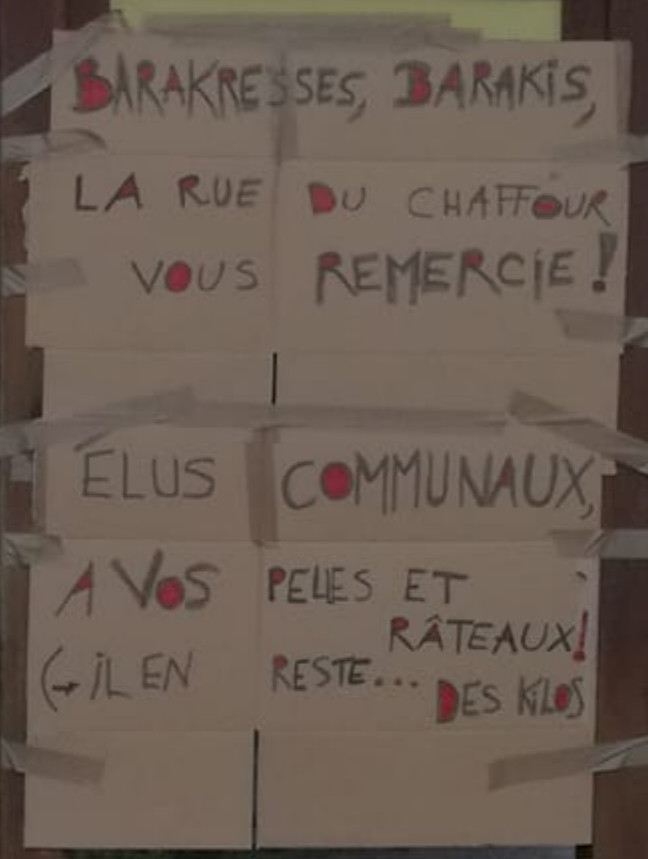 BARAKRESSES, BARAKIS,
LA RUE DU CHAFFOUR
VOUS REMERCIE!
ÉLUS COMMUNAUX,
A VOS PELLES ET
RÂTEAUX!
↪ IL EN RESTE...
DES KILOS